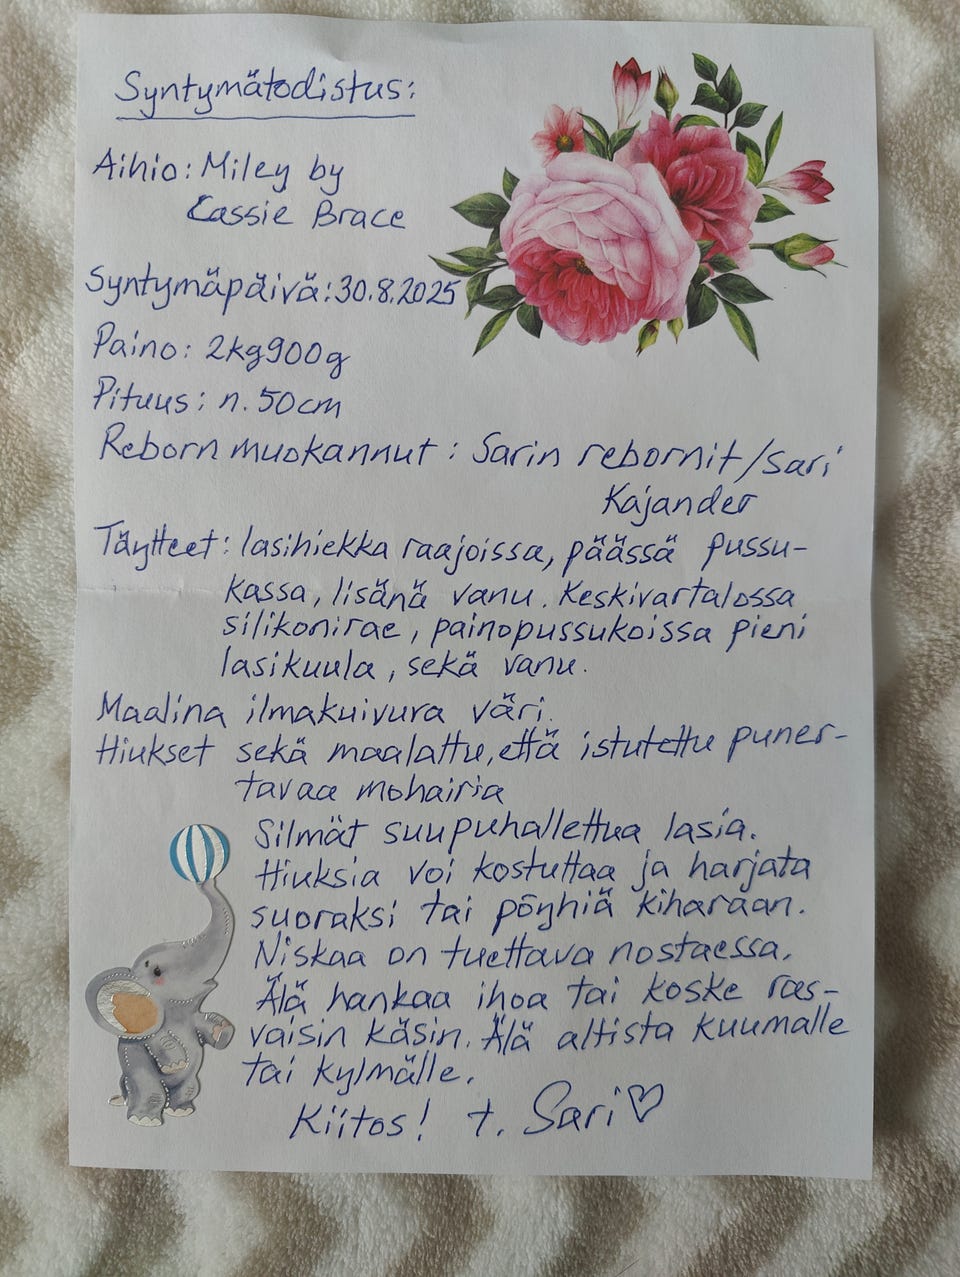 Syntymätodistus:
Aihio: Miley by
Cassie Brace
Syntymäpäivä: 30.8.2025
Paino: 2kg900g
Pituus: n. 50cm
Reborn muokannut: Sarin rebornit/Sari
Kajander
Täytteet: lasihiekka raajoissa, päässä pussu-
kassa, lisänä vanu. Keskivartalossa
silikonirae, painopussukoissa pieni
lasikuula, sekä vanu.
Maalina ilmakuivura väri.
Hiukset sekä maalattu, että istutettu puner-
tavaa mohairia
Silmät suupuhallettua lasia.
Hiuksia voi kostuttaa ja harjata
suoraksi tai pöyhiä kiharaan.
Niskaa on tuettava nostaessa.
Älä hankaa ihoa tai koske ras-
vaisin käsin. Älä altista kuumalle
tai kylmälle.
Kiitos! t. Sari♡